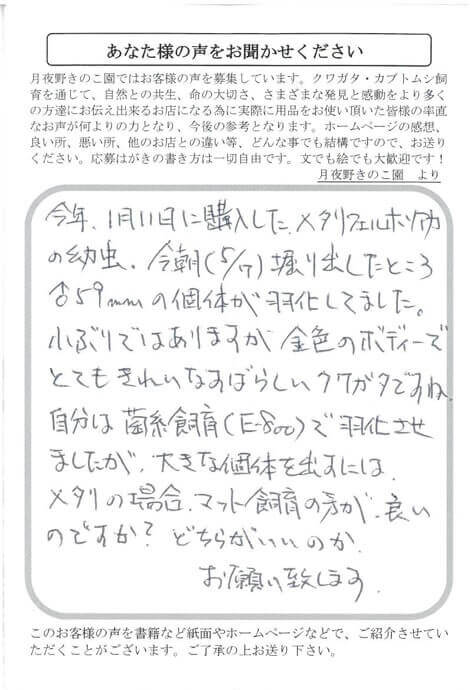 あなた様の声をお聞かせください
月夜野きのこ園ではお客様の声を募集しています。クワガタ・カブトムシ飼
育を通じて、自然との共生、命の大切さ、さまざまな発見と感動をより多く
の方達にお伝え出来るお店になる為に実際に用品をお使い頂いた皆様の率直
なお声が何よりの力となり、今後の参考となります。ホームページの感想、
良い所、悪い所、他のお店との違い等、どんな事でも結構ですので、お送り
ください。応募はがきの書き方は一切自由です。文でも絵でも大歓迎です！
月夜野きのこ園　より
今年、1月11日に購入した、メタリフェルホソアカ
の幼虫、今朝(5/17)掘り出したところ
♂59mmの個体が羽化してました。
小ぶりではありますが金色のボディーで
とてもきれいなすばらしいクワガタですね
自分は菌糸飼育(E-800)で羽化させ
ましたが、大きな個体を出すには、
メタリの場合、マット飼育の方が、良い
のですか？どちらがいいのか、
お願い致します。
このお客様の声を書籍など紙面やホームページなどで、ご紹介させてい
ただくことがございます。ご了承の上お送り下さい。